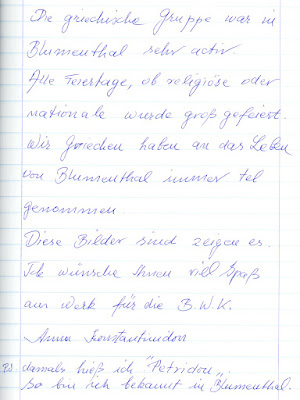 Die griechische Gruppe war in
Blumenthal sehr activ
Alle Feiertage, ob religiöse oder
nationale wurde groß gefeiert.
Wir Griechen haben an das Leben
von Blumenthal immer tel
genommen.
Diese Bilder sind zeigen es.
Ich wünsche Ihnen viell Spaß
am Werk für die B.W.K.
Anna Konstantinidou
P.S. damals hieß ich "Petridou".
So bin ich bekannt in Blumenthal.